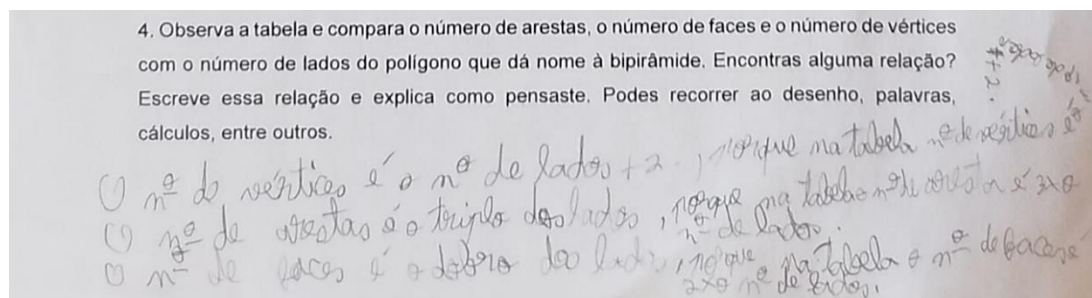 4. Observa a tabela e compara o número de arestas, o número de faces e o número de vértices
com o número de lados do polígono que dá nome à bipirâmide. Encontras alguma relação?
Escreve essa relação e explica como pensaste. Podes recorrer ao desenho, palavras,
cálculos, entre outros.
O nº de vértices é o nº de lados + 2, porque na tabela nº de vértices é
+ 2.
O nº de arestas é o triplo dos lados, porque na tabela o nº de aresta é 3x o
nº de lados.
O nº de faces é o dobro do lado, porque na tabela o nº de faces é
2x o nº de lados.